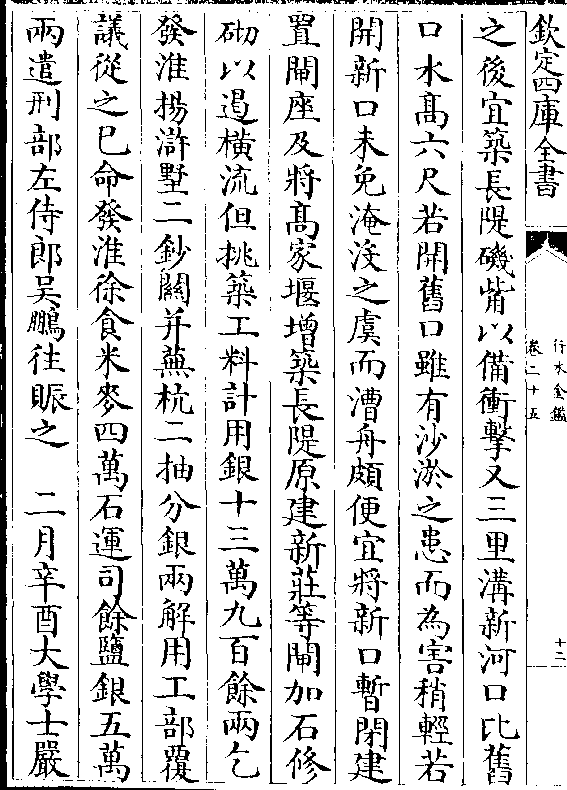 欽定四庫全書
行水金鑑
卷二十五
十二
之後宜築長隄磯觜以備衝擊又三里溝新河口比舊
口水高六尺若開舊口雖有沙淤之患而為害稍輕若
開新口未免淹沒之虞而漕舟頗便宜將新口暫閉建
置閘座及將高家堰增築長隄原建新莊等閘加石修
砌以遏橫流但挑築工料計用銀十三萬九百餘兩乞
發淮揚滸墅二鈔關并蕪杭二抽分銀兩解用工部覆
議從之已命發淮徐食米麥四萬石運司餘鹽銀五萬
兩遣刑部左侍郎吳鵬往賑之　二月辛酉大學士嚴